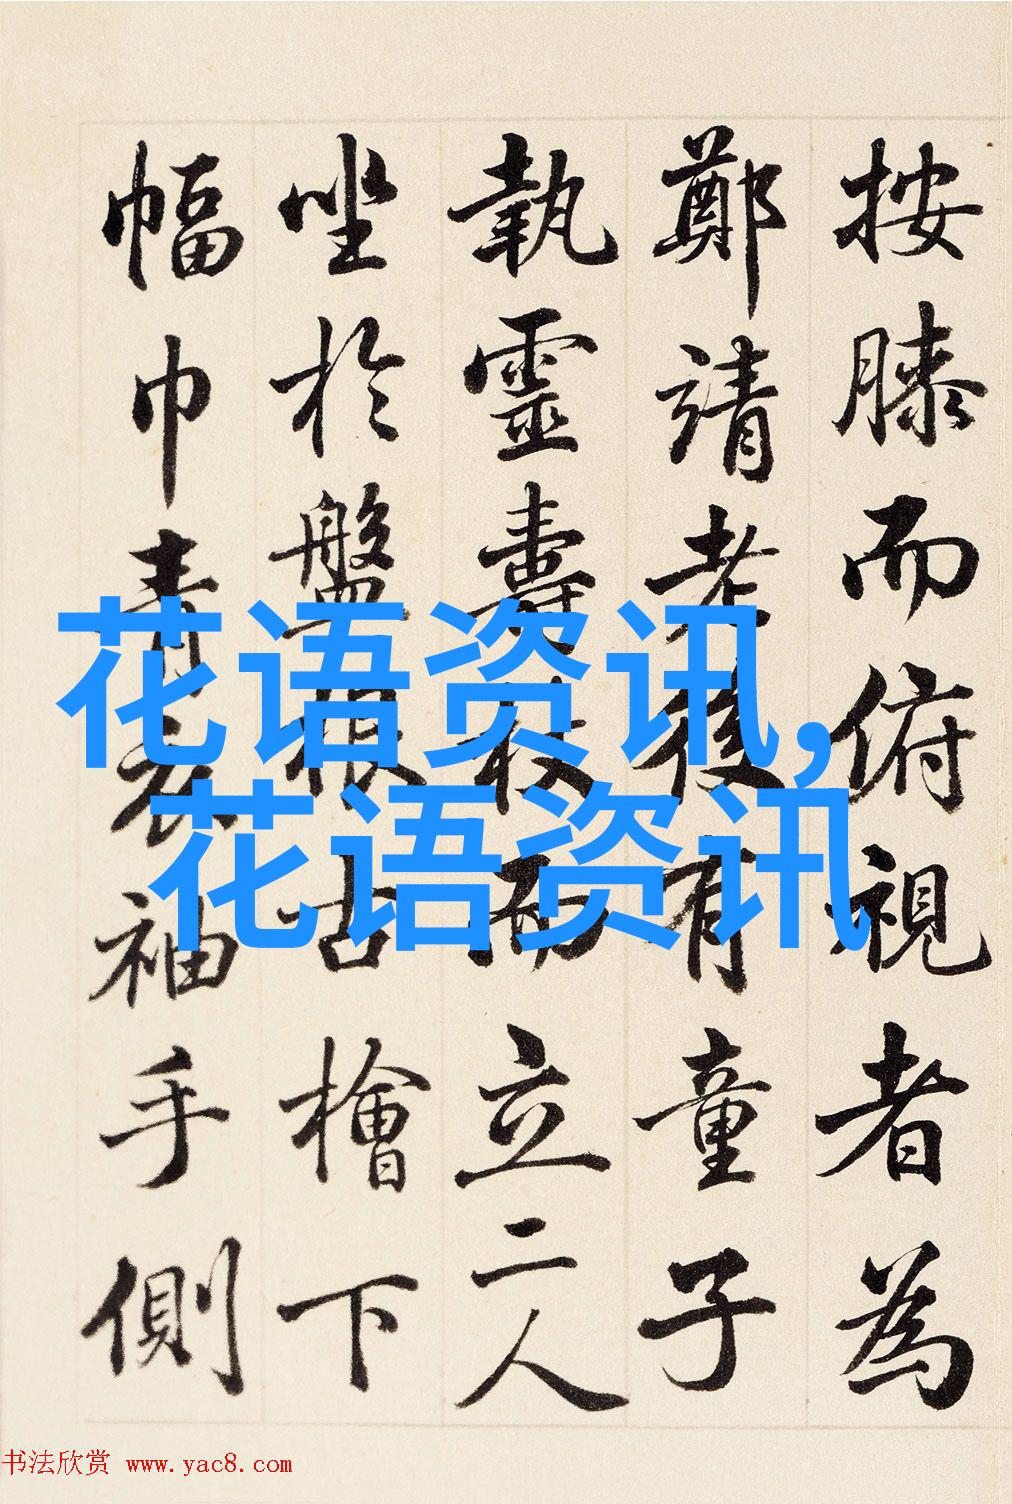 按膝而俯視者為
鄭靖老後有童子
執靈壽杖而立二人
坐於盤根古檜下
幅巾青衣袖手側
花语资讯,
花语资讯
书法欣赏 www.yac8.com